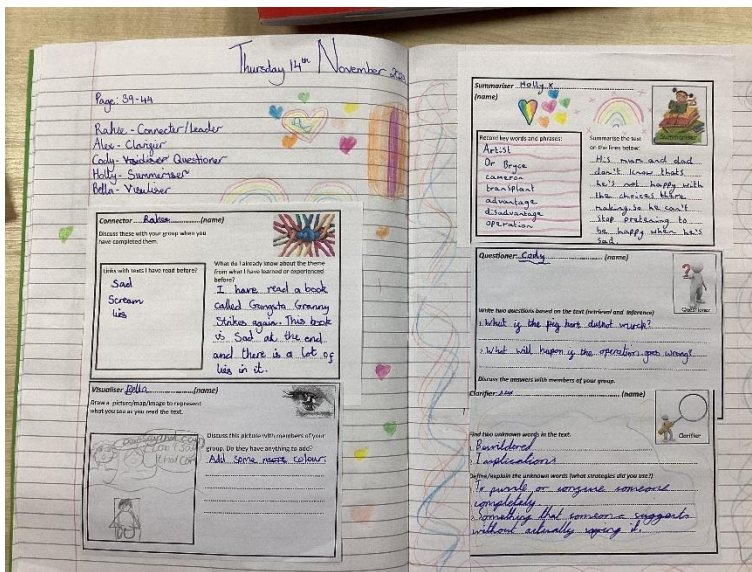 Thursday 14th November
Page: 39-44
Rahee - Connecter/Leader
Alex - Clarifier
Cody - Questioner
Holly - Summeriser
Bella - Visuliser
Connector Rahee (name)
Discuss these with your group when you
have completed them.
Links with texts I have read before?
Sad
Scream
lies
What do I already know about the theme
from what I have learned or experienced
before?
I have read a book
called Gangsta Granny
Strikes again. This book
is Sad at the end
and there is a lot of
lies in it.
Visualiser Bella (name)
Draw a picture/map/image to represent
what you see as you read the text.
Discuss this picture with members of your
group. Do they have anything to add?
Add some more colour.
Summariser Holly x
(name)
Summariser
Record key words and phrases:
Artist
Dr Bryce
cameron
transplant
advantage
disadvantage
operation
Summarise the text
on the lines below:
His mum and dad
don't know thats
he's not happy with
the choices there
making. So he can't
stop pretening to
be happy when he's
sad.
Questioner Cody (name)
Questioner
Write two questions based on the text (retrieval and inference)
What if the pig hart dusnot wurck?
What will hapon if the operation goes wrong?
Discuss the answers with members of your group.
Clarifier (name)
Clarifier
Find two unknown words in the text.
Bewildered
Implications
Define/explain the unknown words (what strategies did you use?)
To puzzle or someone
completely
Something that someone suggests
without actually saying it.